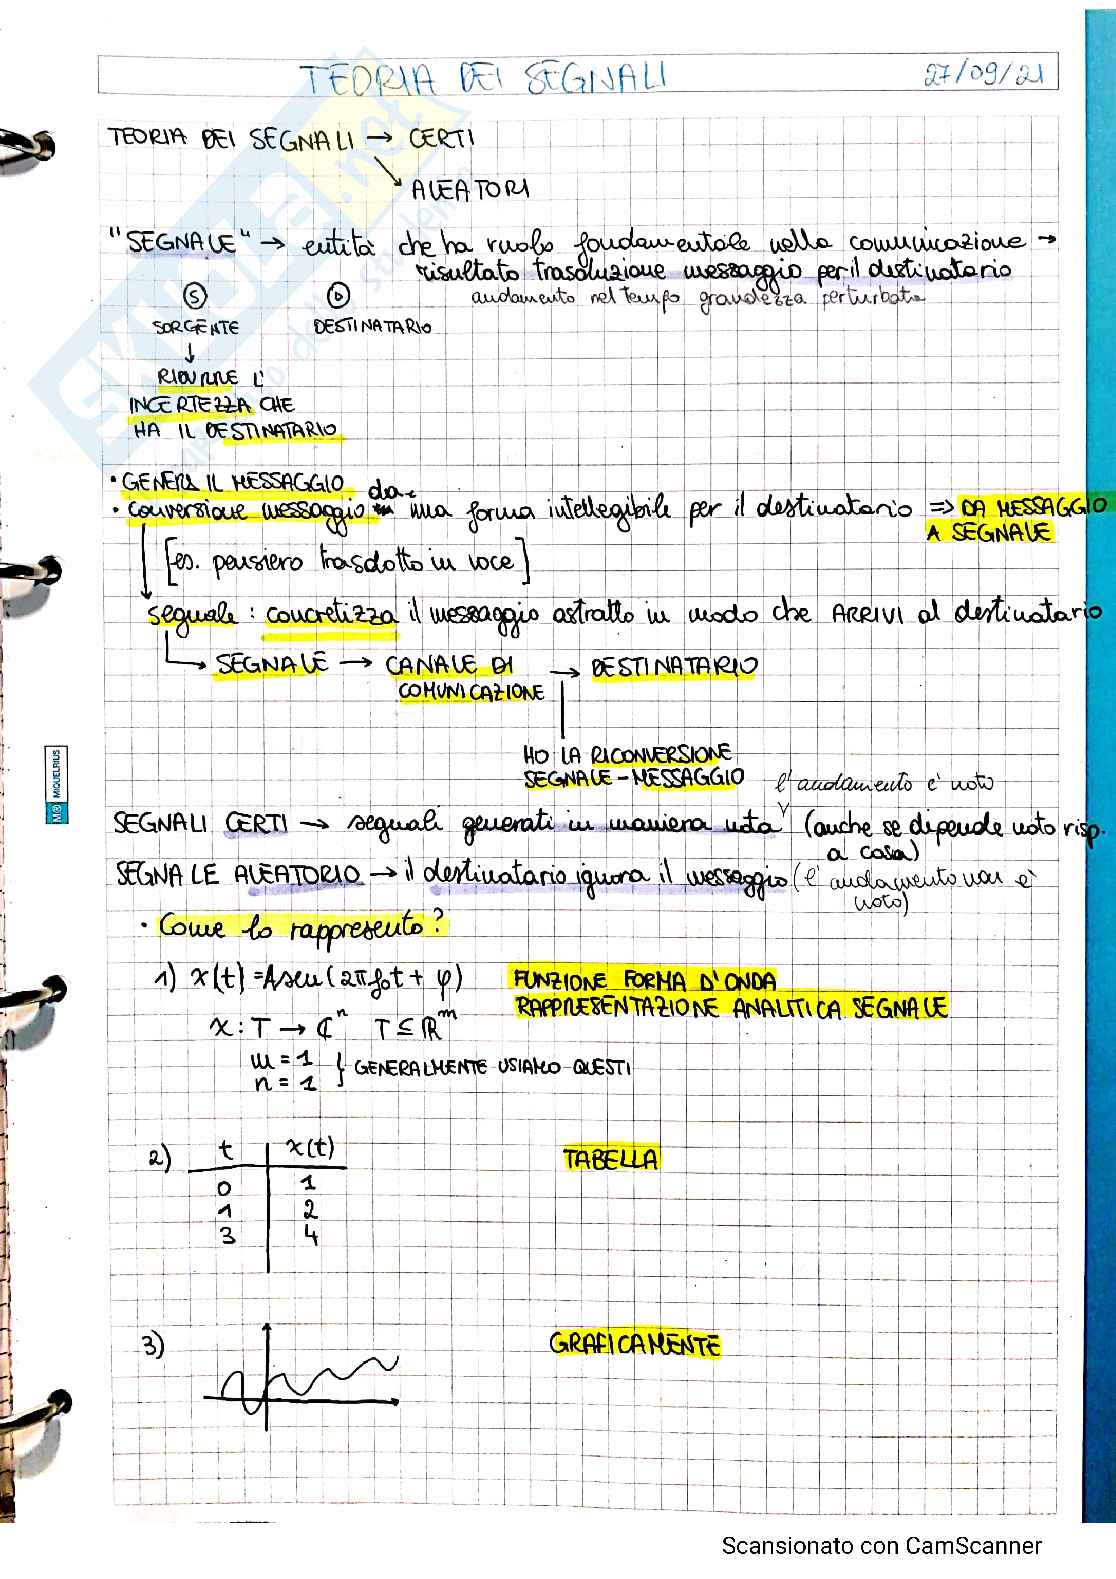 TEORIA DEI SEGNALI 27/09/21
TEORIA DEI SEGNALI → CERTI
↘ ALEATORI
"SEGNALE" → entità che ha ruolo fondamentale nella comunicazione →
risultato trasduzione messaggio per il destinatario
andamento nel tempo grandezza perturbata
S D
SORGENTE DESTINATARIO
↓
RIDURRE L'
INCERTEZZA CHE
HA IL DESTINATARIO
• GENERA IL MESSAGGIO
• conversione messaggio da una forma intellegibile per il destinatario => DA MESSAGGIO
A SEGNALE
[es. pensiero trasdotto in voce]
segnale : concretizza il messaggio astratto in modo che ARRIVI al destinatario
→ SEGNALE → CANALE DI → DESTINATARIO
COMUNICAZIONE
HO LA RICONVERSIONE
SEGNALE - MESSAGGIO
l'andamento è noto
SEGNALI CERTI → segnali generati in maniera nota (anche se dipende noto risp.
a cosa)
SEGNALE ALEATORIO → il destinatario ignora il messaggio (l'andamento non è
noto)
• Come lo rappresento?
1) x(t) = A sen (2πf₀t + φ) FUNZIONE FORMA D'ONDA
RAPPRESENTAZIONE ANALITICA SEGNALE
x : T → ℂⁿ T ⊆ ℝᵐ
m = 1
n = 1 } GENERALMENTE USIAMO QUESTI
2) t x(t) TABELLA
0 1
1 2
3 4
3) GRAFICAMENTE
MIQUELRIUS
SKUOLA.net
Scansionato con CamScanner